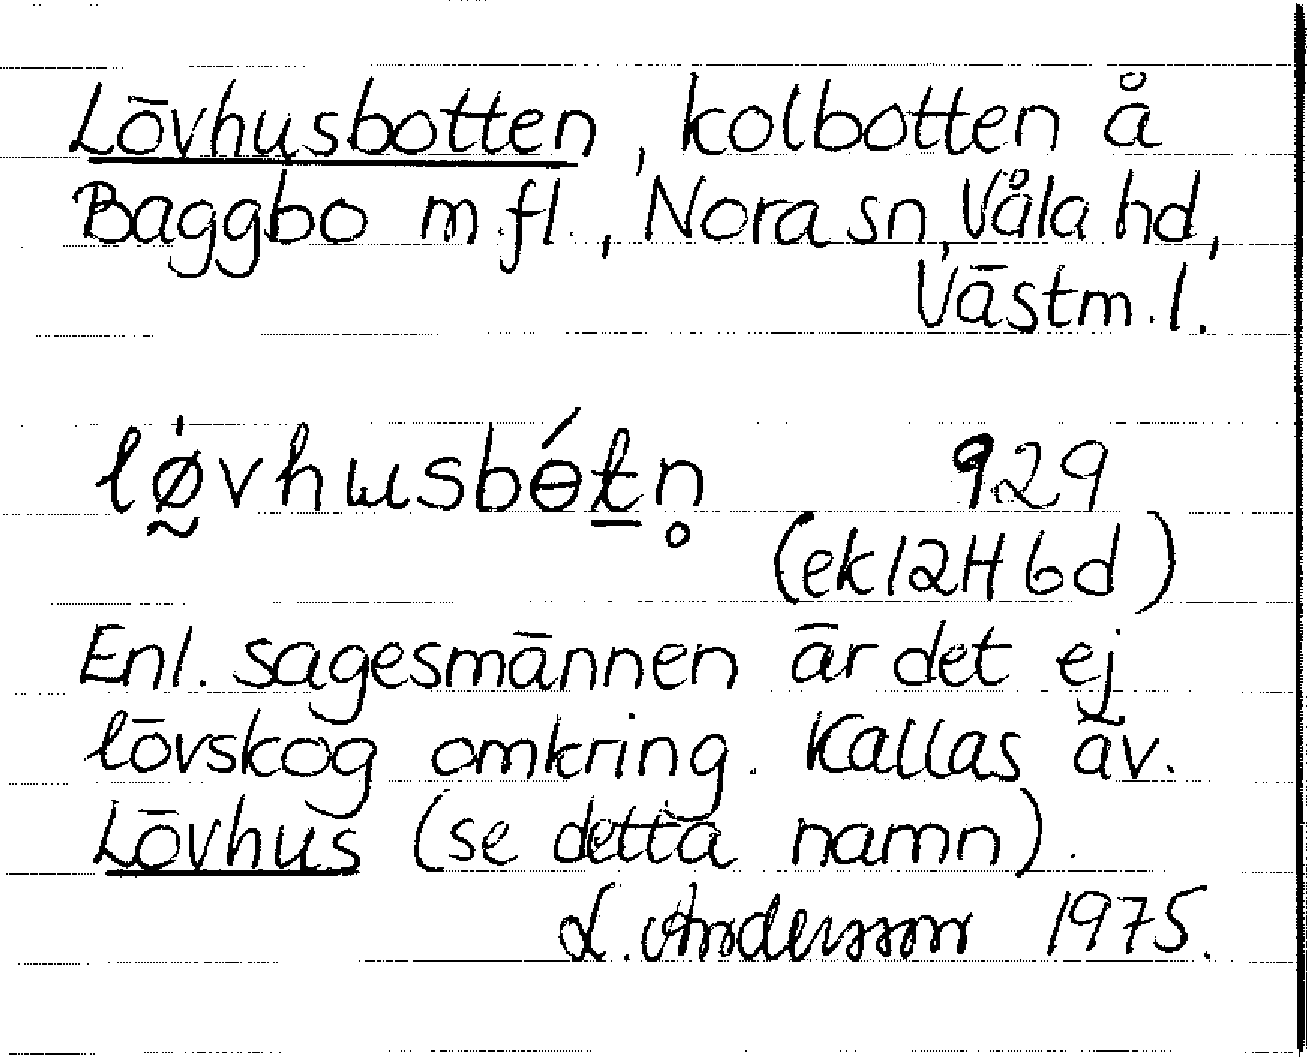 Lövhusbotten, kolbotten å
Baggbo m.fl., Nora sn, Våla hd,
Västm.l.
lø̰̍vhusbɵ́t̲n̥ 929
(ek 12H 6d)
Enl. sagesmännen är det ej
lövskog omkring. Kallas äv.
Lövhus (se detta namn).
L. Andersson 1975.